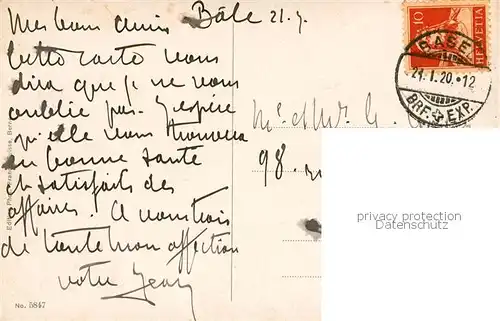 Mes bons amis Bâle 21.1.
Cette carte vous
dira que je ne vous
oublie pas. J'espère
qu'elle vous trouvera
en bonne santé
et satisfaits des
affaires. A vous trois
de toute mon affection
votre Jean
Mr et Md. G.
98.
10
HELVETIA
BASEL
21.I.20.-12
BRF. EXP.
privacy protection
Datenschutz
No. 5847